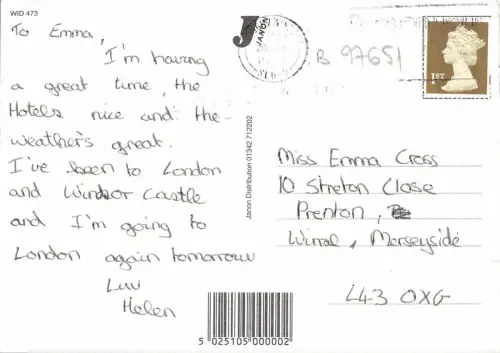 WID 473
To Emma,
I'm having
a great time, the
Hotels nice and the
weather's great.
I've been to London
and Windsor Castle
and I'm going to
London again tomorrow
Luv
Helen
Janon Distribution 01342 712202
J
JANON
B 97651
1ST
Miss Emma Cross
10 Streton Close
Prenton,
Wirral, Merseyside
L43 OXG
5 025105 000002